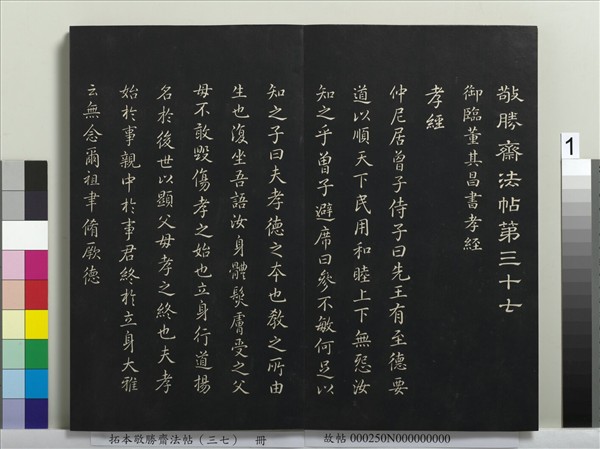 敬勝齋法帖第三十七
御臨董其昌書孝經
孝經
仲尼居曾子侍子曰先王有至德要
道以順天下民用和睦上下無怨汝
知之乎曾子避席曰參不敏何足以
知之子曰夫孝德之本也教之所由
生也復坐吾語汝身體髮膚受之父
母不敢毀傷孝之始也立身行道揚
名於後世以顯父母孝之終也夫孝
始於事親中於事君終於立身大雅
云無念爾祖聿脩厥德
1
拓本敬勝齋法帖（三七） 冊
故帖 000250N000000000